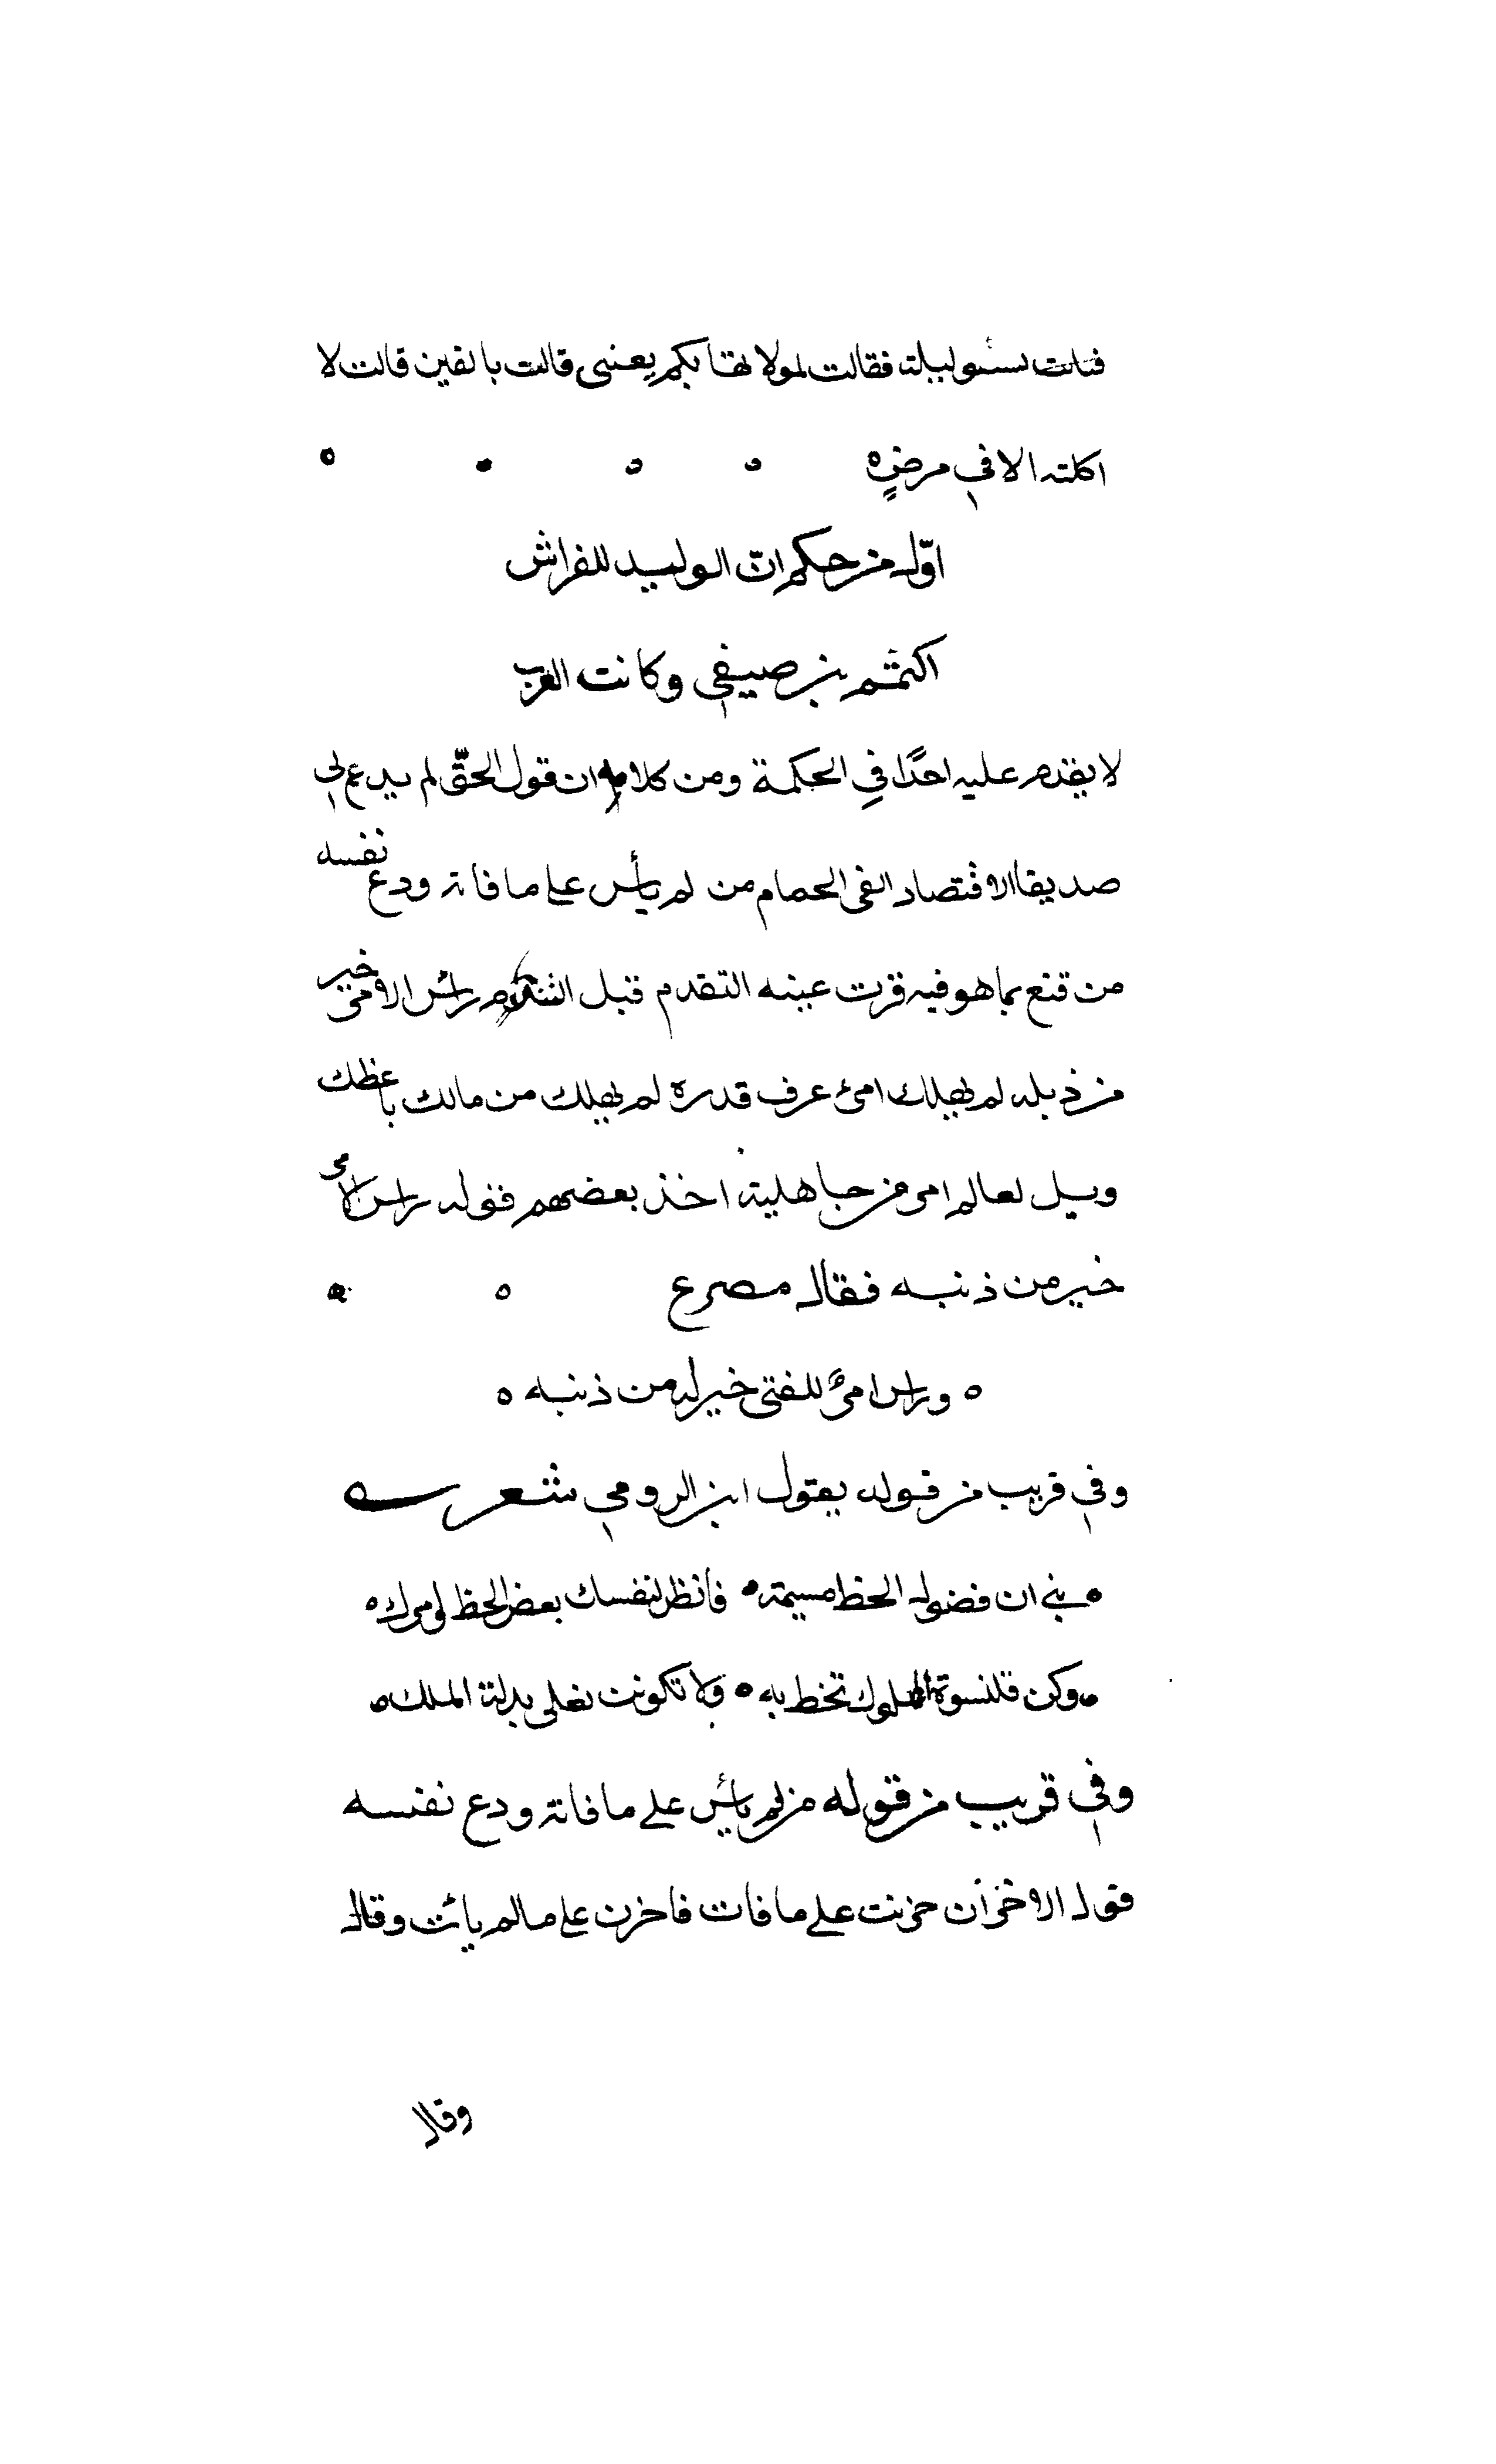 فباتت بسوء ليلة فقالت لمولاتها بكم يعني قالت بالفين قالت لا
اكلته الا في مرضٍ ه
اوّل من حكم انّ الوليد للفراش
اكثم بن صيفي وكانت العرب
لا يقدم عليه احدًا في الحكمة ومن كلامه ان قول الحقّ لم يدع لي
صديقا الاقتصاد انفى الحمام من لم يأس على ما فاته ودع نفسه
من قنع بما هو فيه قرت عينه التقدم قبل التندم راس الامر خير
من ذيله لم يهلك امرئ عرف قدره لم يهلك من مالك ما عظك
ويل لعالم امر من جاهلية اخذ بعضهم قوله راس الامر
خير من ذنبه فقال مصرع
ه وراس امرئ للفتى خير له من ذنبه ه
وفي قريب من قوله يقول ابن الرومي شعر
بني ان فضول الحظ مسيمة ه فانظر لنفسك بعض الحظ او
وكن قلنسوة الملوك تخط به ه ولا تكونن نعلى بدلة الملك ه
وفي قريب من قوله من لم يأس على ما فاته ودع نفسه
قول الاخر أن حزنت على ما فات فاحزن على ما لم يأت وقال
وقال